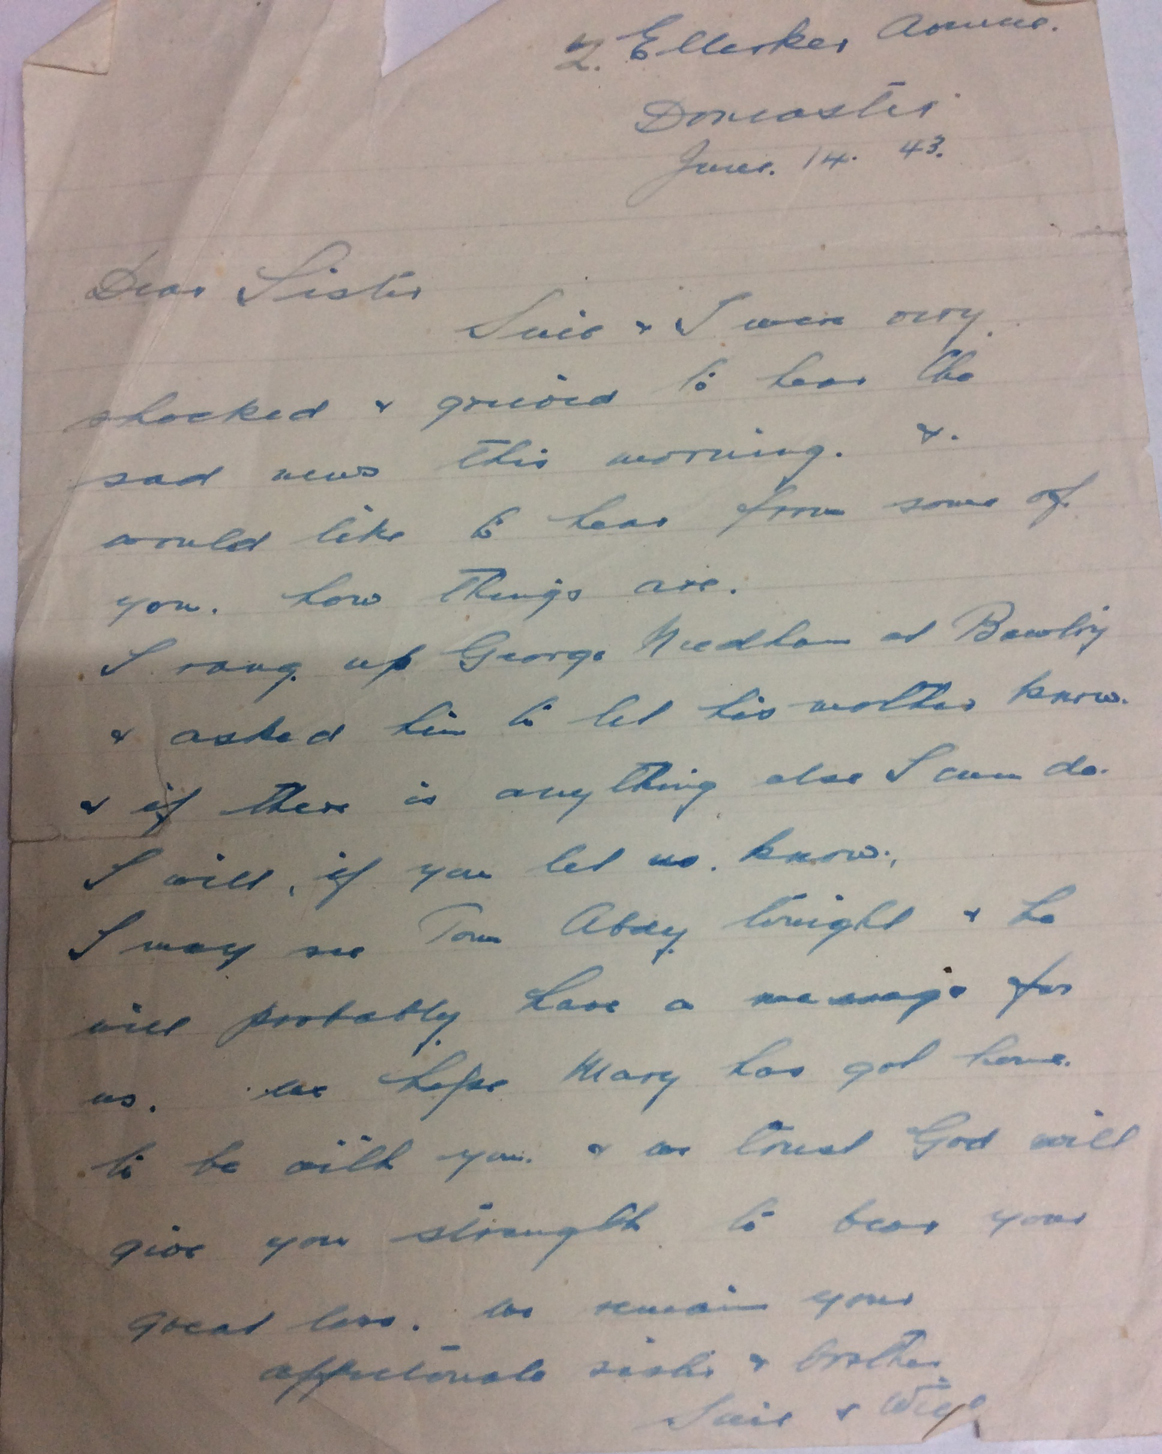 2. Ellerker Avenue.
Doncaster
June. 14. 43.
Dear Sister
Suie & I were very
shocked & grieved to hear the
sad news this morning. &.
would like to hear from some of
you. how things are.
I rang up George Needham at Bawtry
& asked him to let his mother know.
& if there is anything else I can do.
I will, if you let us. know.,
I may see Tom Abdy tonight & he
will probably have a message for
us. we hope Mary has got home.
to be with you. & we trust God will
give you strength to bear your
great loss. We remain your
affectionate sister & brother
Suie &